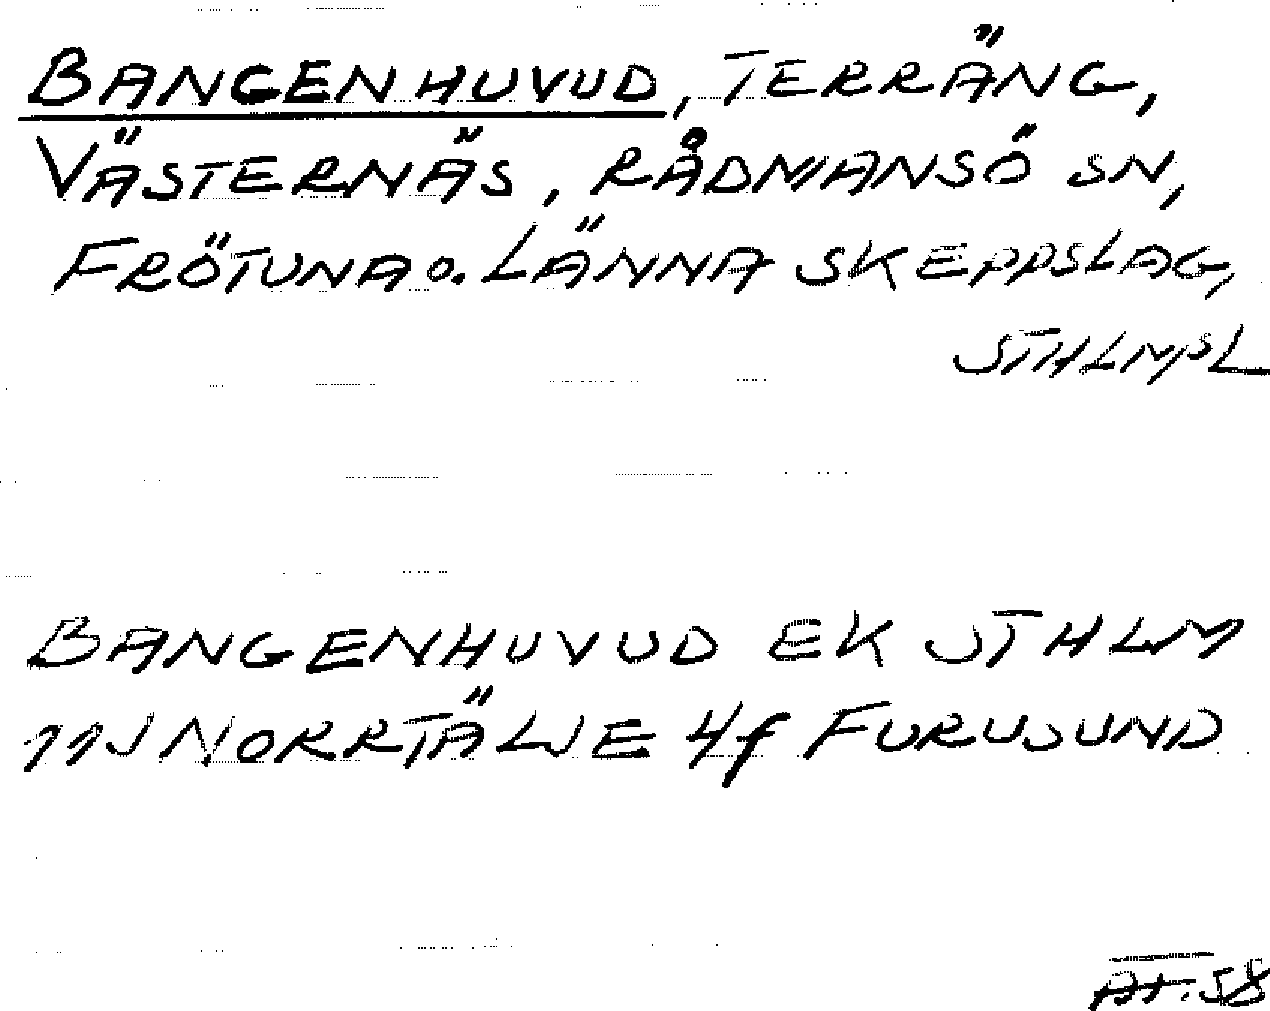 BANGENHUVUD, TERRÄNG,
VÄSTERNÄS, RÅDMANSÖ SN,
FRÖTUNA O. LÄNNA SKEPPSLAG,
STHLMSL
BANGENHUVUD EK STHLM
11J NORRTÄLJE 4f FURUSUND
AT. 58